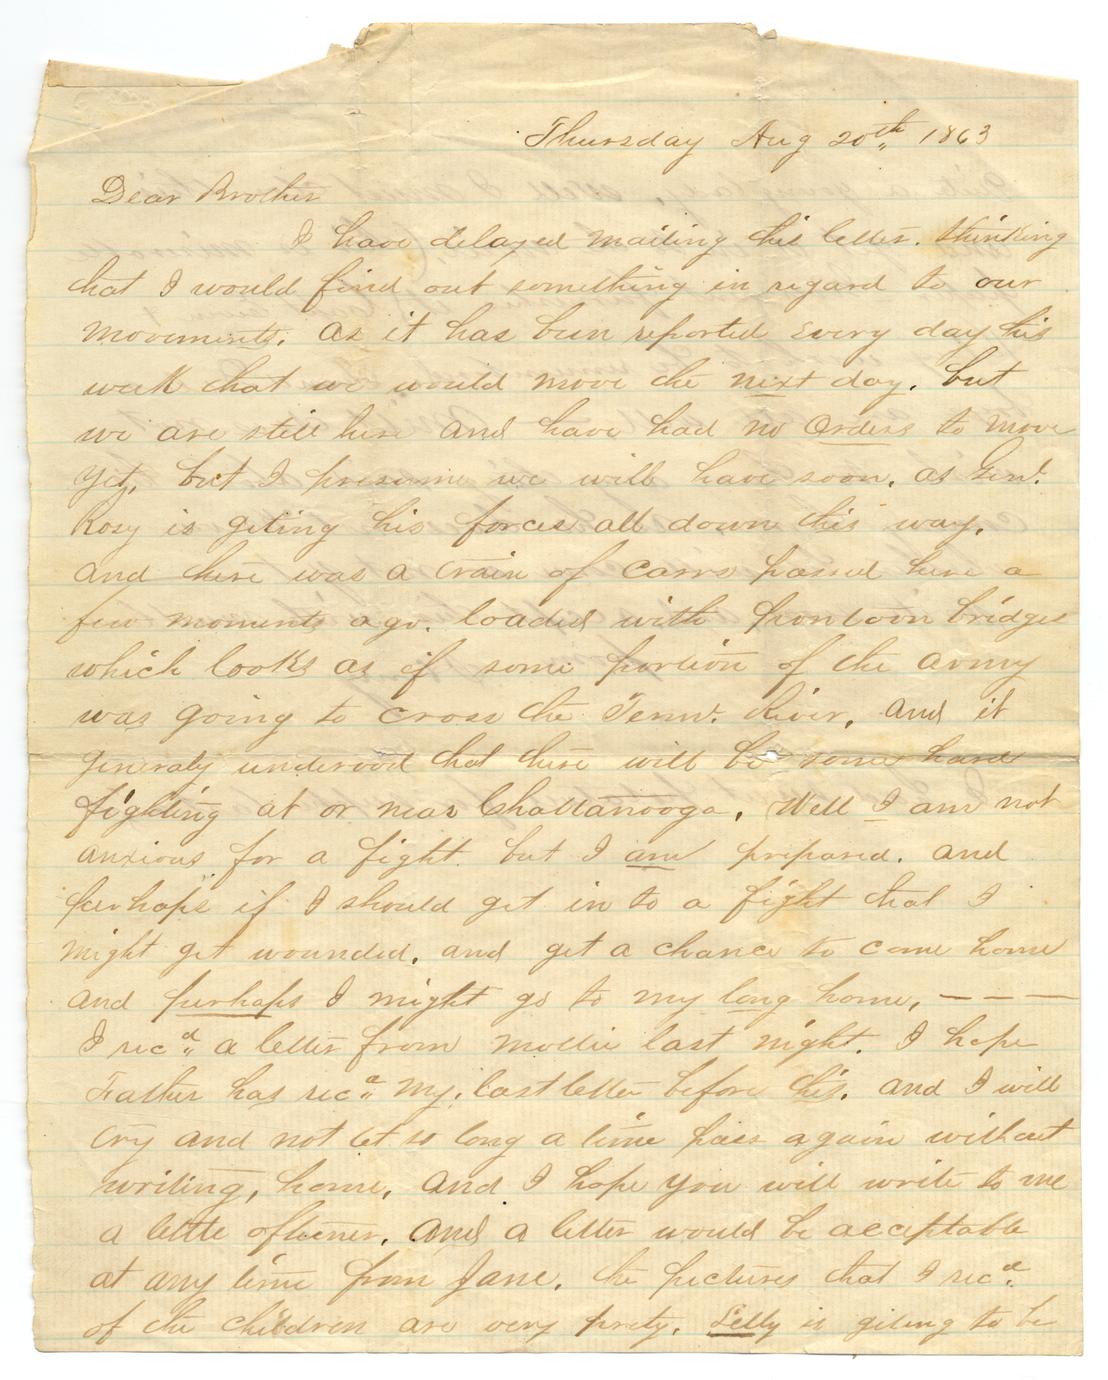 Thursday Aug 20th, 1863
Dear Brother
I have delayed mailing this letter. thinking
that I would find out something in regard to our
movements. as it has been reported every day this
week that we would move the next day. but
we are still here and have had no orders to move
yet, but I presume we will have soon. as Genl.
Rosy is geting his forces all down this way.
and there was a train of carrs passed here a
few moments ago. loaded with pontoon bridges
which looks as if some portion of the army
was going to cross the Tenn. River. and it
generaly underood that there will be some hard
fighting at or near Chattanooga, Well I am not
anxious for a fight. but I am prepared. and
perhaps if I should get in to a fight that I
might get wounded. and get a chance to come home
and perhaps I might go to my long home, — — —
I recd a letter from Mollie last night. I hope
Father has recd my last letter before this. and I will
try and not let so long a time pass again without
writing, home, and I hope you will write to me
a little oftener. and a letter would be acceptable
at any time from Jane. the pictures that I recd
of the children are very prety. Lelly is giting to be